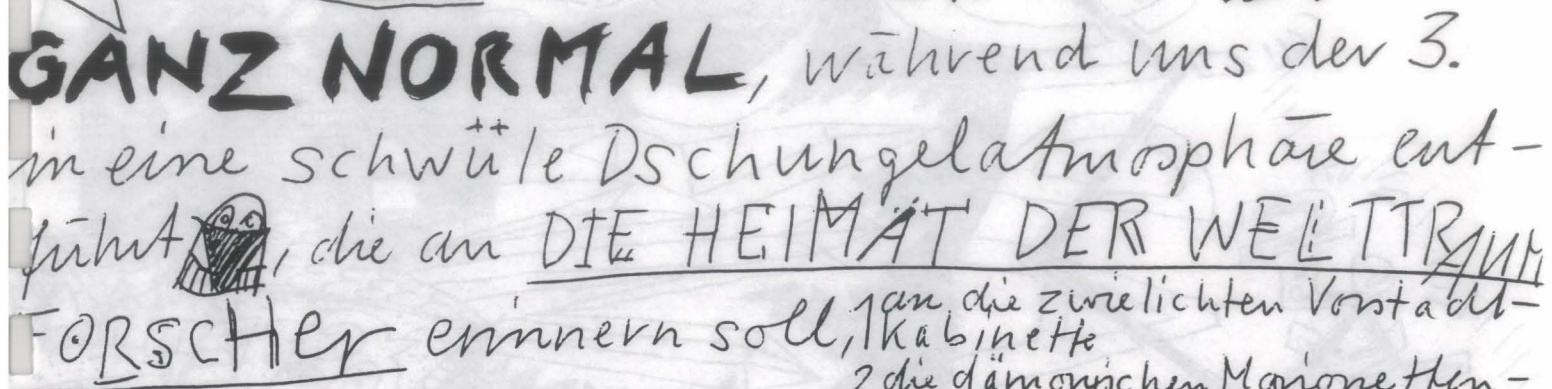 GANZ NORMAL, während uns der 3.
in eine schwüle Dschungelatmosphäre ent-
führt, die an DIE HEIMAT DER WELTTRAUM
FORSCHER erinnern soll, 1 an die zwielichten Vorstadt-
kabinette
2 die dämonischen Marionetten-